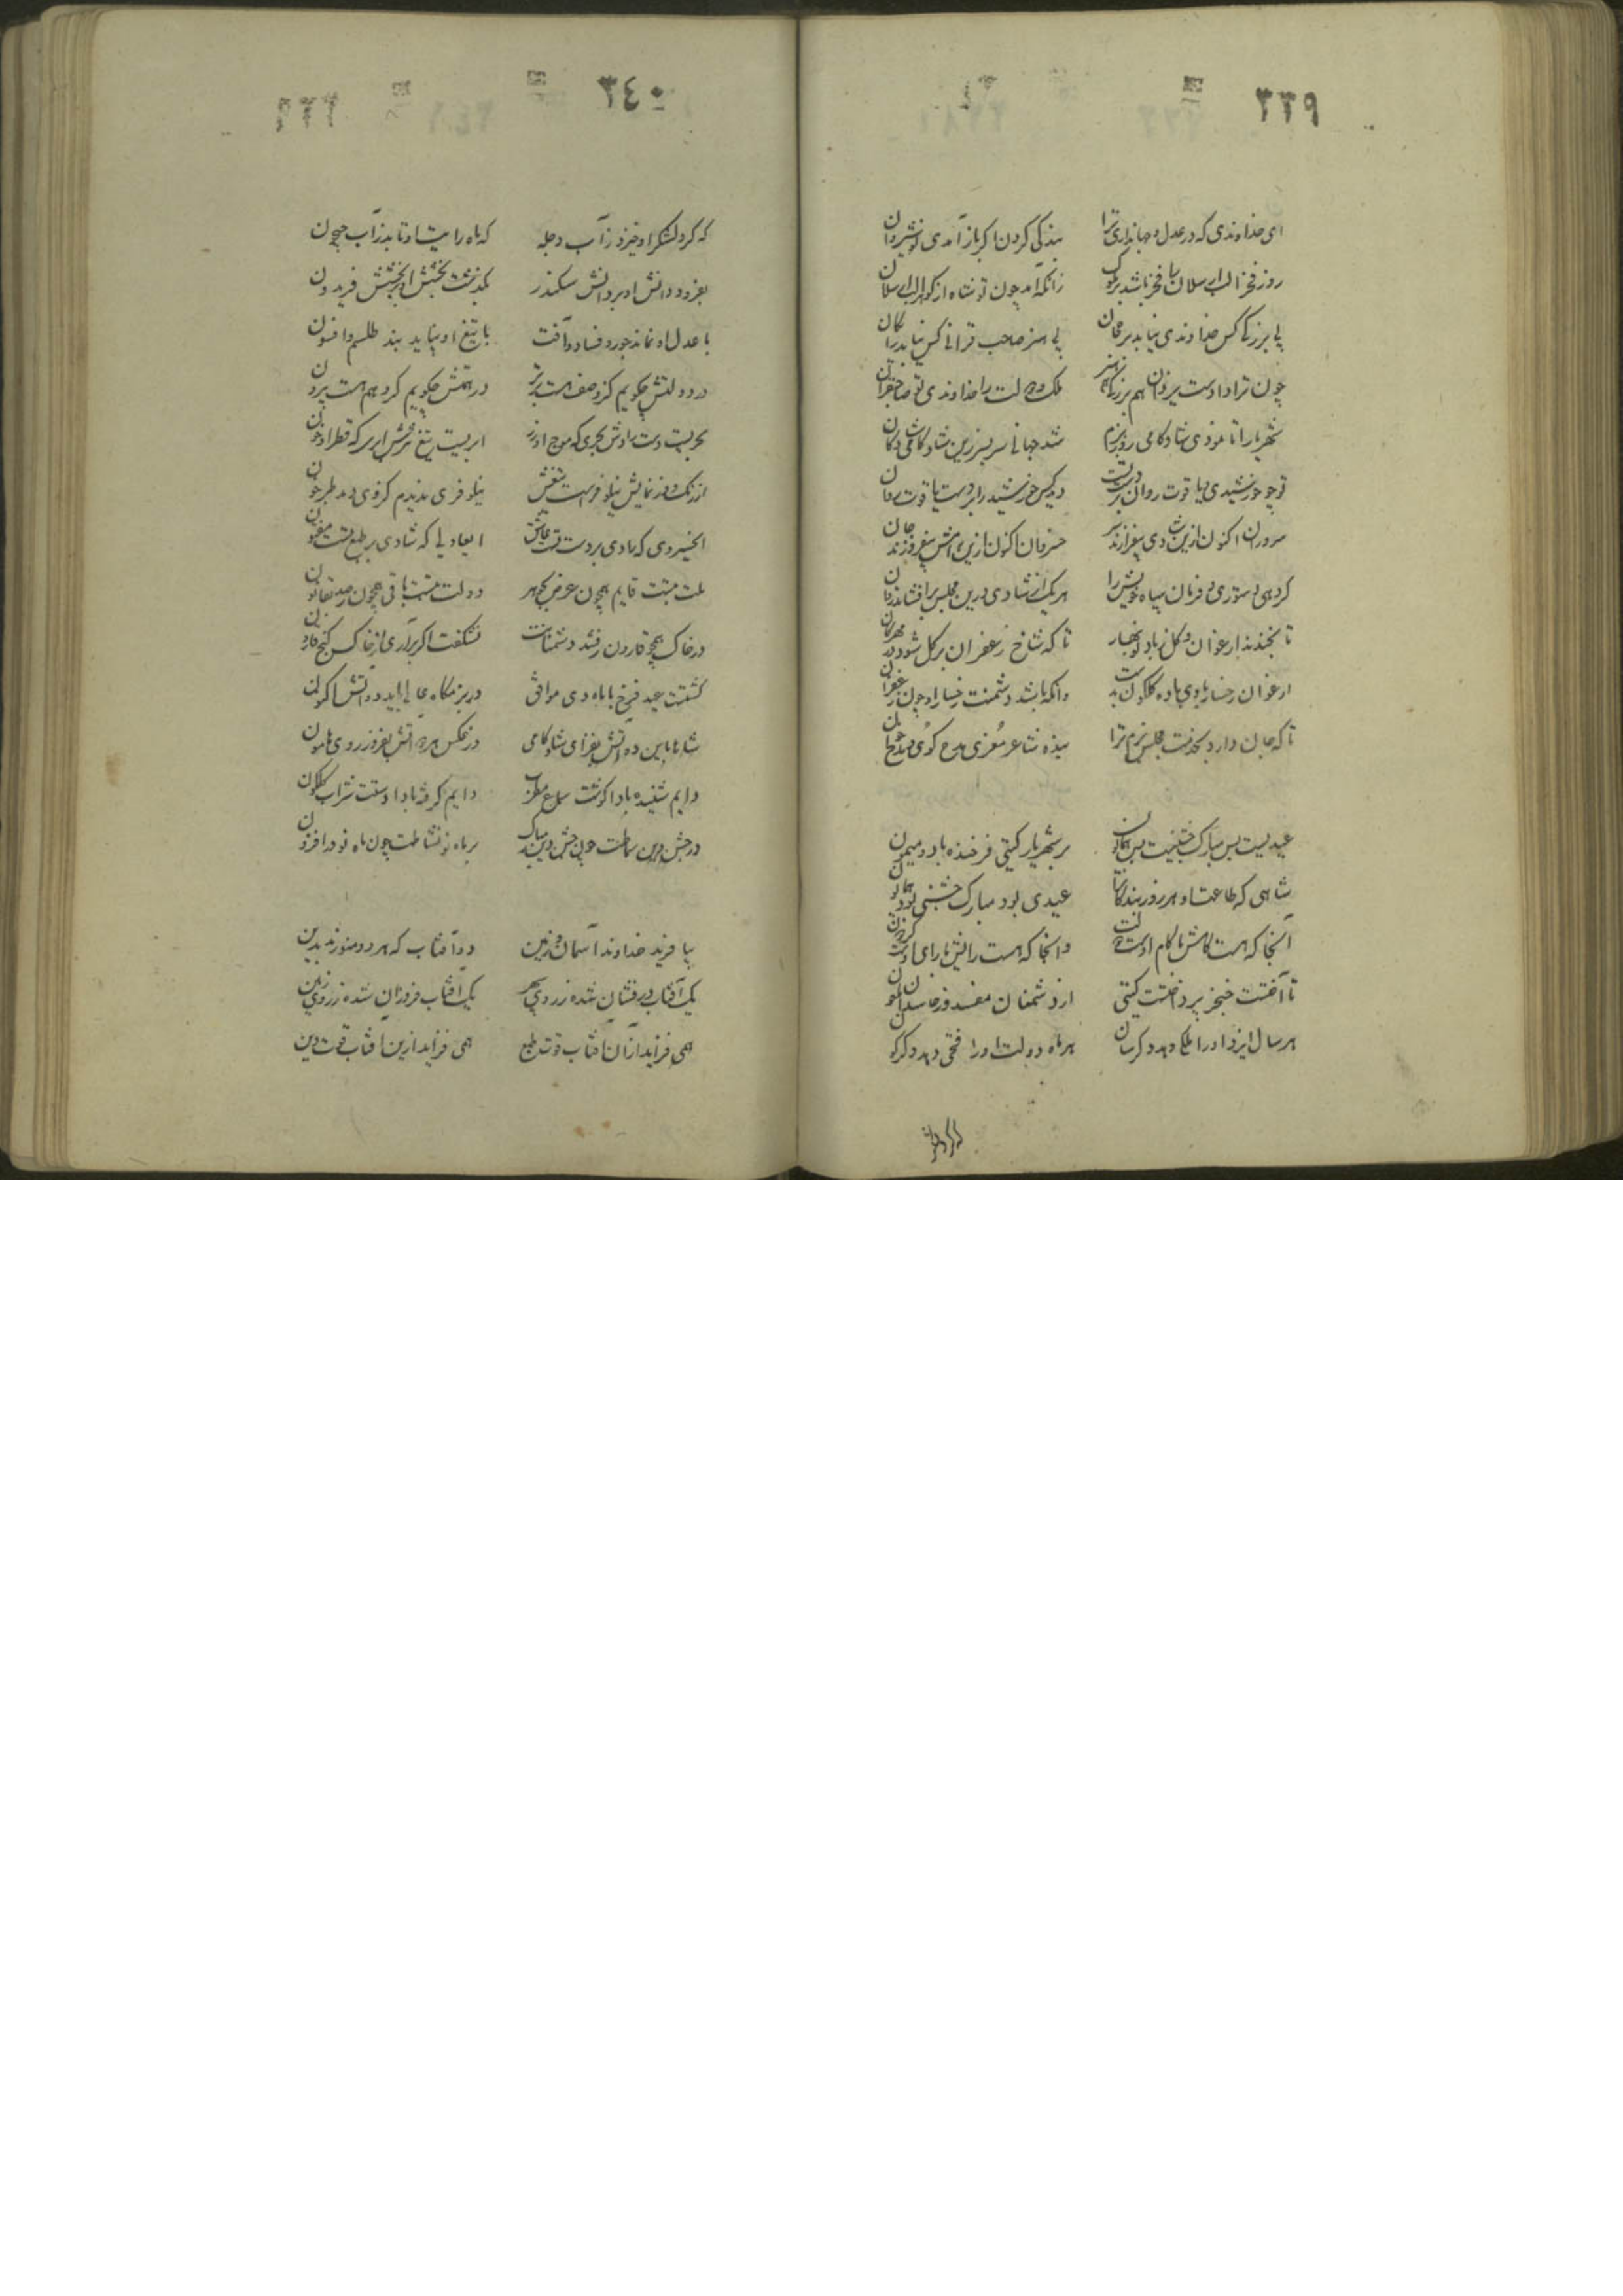 ٣٣٩
ای خداوندی که در عدل و جهانداری ترا بندگی کردن اگر باز آمدی نوشیروان
روز فخر الب ارسلان را فخر باشد بر ملوک زانکه آمد چون تو شاه از گوهر الب ارسلان
بی بزرگی کس خداوندی نیابد بر جهان بی هنر صاحب قرانی کس نیابد رایگان
چون ترا دادست یزدان هم بزرگی هم هنر ملک و دولت را خداوندی تو صاحبقران
شهریارا تا نمودی شادکامی روز بزم شد جهانی سربسر زین شادکامی شادمان
تو چو خورشیدی و یاقوت روان بر دست تست دید کس خورشید را بر دست یاقوت روان
سروران اکنون ازین شادی بیفرازند سر خسروان اکنون ازین رامش بیفروزند جان
گر دهی دستوری و فرمان سپاه خویش را هر یک از شادی درین مجلس برافشاند روان
تا بخندند ارغوان و گل ز باد نوبهار تا که شاخ زعفران بر گل شود در مهرگان
ارغوان رخسار بادی باده گلگون بدست وانکه باشد دشمنت رخسار او چون زعفران
تا که جان دارد بخدمت مجلس بزم ترا بنده شاعر معزی مدح گوی و مدح خوان
عیدیست بس مبارک جشنیست بس همایون بر شهریار گیتی فرخنده باد و میمون
شاهی که طاعت او هر روز بندگانرا عیدی بود مبارک جشنی بود همایون
آنجا که هست کامش با کام اوست دولت وانجا که هست رایش با رای اوست گردون
تا آختست خنجر پرداختست گیتی از دشمنان مفسد وز حاسدان ملعون
هر سال ایزد او را ملکی دهد دگرسان هر ماه دولت او را فتحی دهد دگرگون
٣٤٠
که گرد لشکر او خیزد ز آب دجله که ماه رایت او تابد ز آب جیحون
بفزود دانش او بر دانش سکندر بگذشت بخشش او بر بخشش فریدون
با عدل او نماند جور و فساد و آفت با تیغ او نپاید بند طلسم و افسون
در دولتش چگویم کز وصف هست برتر در همتش چگویم کز وهم هست بیرون
بحریست دست رادش بحری که موج او زر ابریست تیغ تیزش ابری که قطر او خون
از رنگ و از نمایش نیلوفرست تیغش نیلوفری ندیدم کز وی دمد طبرخون
ای خسروی که رادی بر دست تست عاشق ای عادلی که شادی بر طبع تست مفتون
ملت بتست قایم همچون عرض بجوهر دولت بتست باقی
در خاک همچو قارون رفتند دشمنانت نشگفت اگر برآری از خاک گنج قارون
گشتست عید فرخ با ماه دی موافق در بزمگاه عالی باید دو آتش اکنون
شاها باین دو آتش بفزای شادکامی در عکس هر دو آتش بفروز روی هامون
دایم شنیده بادا گوشت سماع مطرب دایم گرفته بادا دستت شراب گلگون
بر ماه نو نشاطت چون ماه نو در افزون
بیافرید خداوند آسمان و زمین دو آفتاب که هر دو منورند ببین
یک آفتاب درفشان شده ز روی سپهر یک آفتاب فروزان شده ز روی زمین
همی فزاید از آن آفتاب قوت طبع همی فزاید ازین آفتاب قوت دین